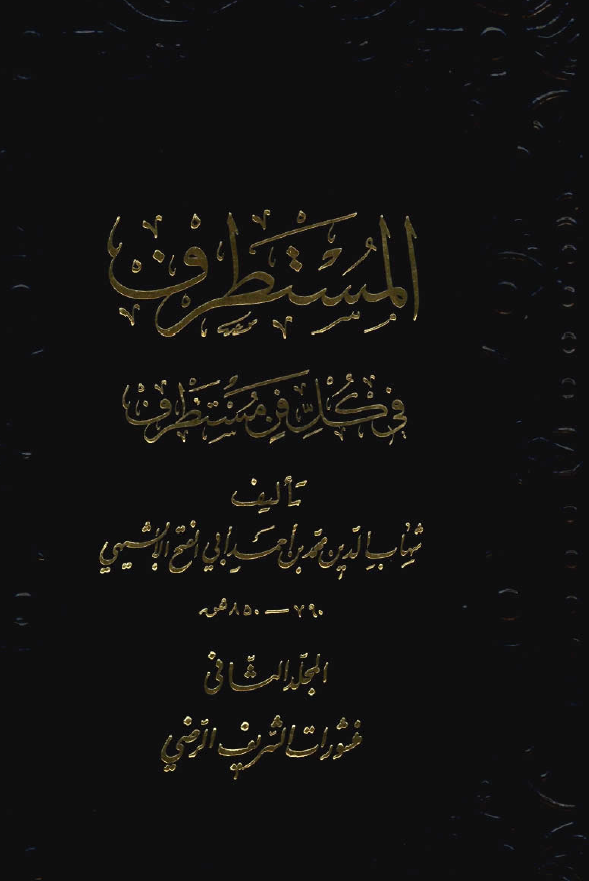 المُسْتَطْرَف
في كُلِّ فَنٍّ مُسْتَظْرَف
تأليف
شهاب الدين محمد بن أحمد أبي الفتح الأبشيهي
٧٩٠ — ٨٥٠ هـ
المجلد الثاني
منشورات الشريف الرضي